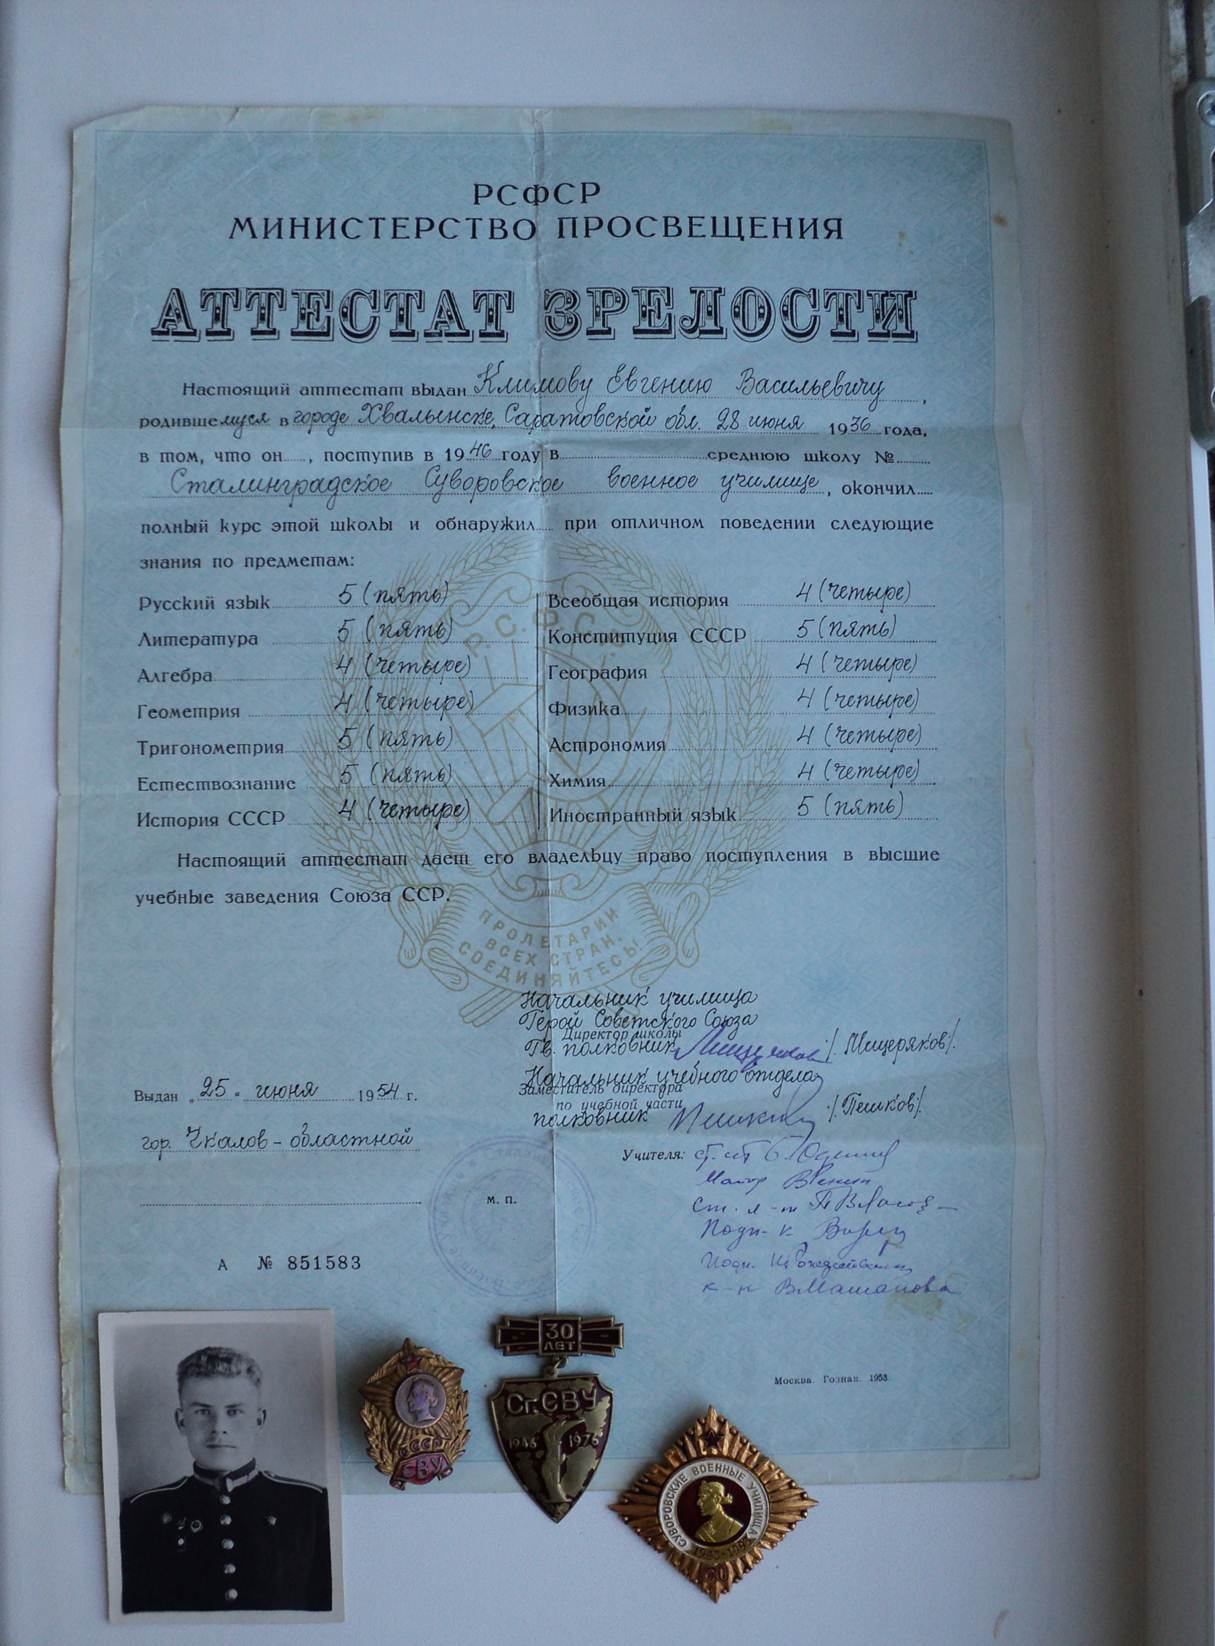 РСФСР
МИНИСТЕРСТВО ПРОСВЕЩЕНИЯ
АТТЕСТАТ ЗРЕЛОСТИ
Настоящий аттестат выдан Климову Евгению Васильевичу,
родившемуся в городе Хвалынске, Саратовской обл. 28 июня 1936 года,
в том, что он, поступив в 1946 году в среднюю школу №
Сталинградское Суворовское военное училище, окончил
полный курс этой школы и обнаружил при отличном поведении следующие
знания по предметам:
Русский язык 5 (пять)
Литература 5 (пять)
Алгебра 4 (четыре)
Геометрия 4 (четыре)
Тригонометрия 5 (пять)
Естествознание 5 (пять)
История СССР 4 (четыре)
Всеобщая история 4 (четыре)
Конституция СССР 5 (пять)
География 4 (четыре)
Физика 4 (четыре)
Астрономия 4 (четыре)
Химия 4 (четыре)
Иностранный язык 5 (пять)
Р.С.Ф.С.Р.
Настоящий аттестат дает его владельцу право поступления в высшие
учебные заведения Союза ССР.
ПРОЛЕТАРИИ
ВСЕХ СТРАН,
СОЕДИНЯЙТЕСЬ!
Начальник училища
Герой Советского Союза
Директор школы
Гв. полковник /Мищеряков/.
Начальник учебного отдела
Заместитель директора
по учебной части
полковник /Пешков/.
Выдан „25" июня 1954 г.
гор. Чкалов-областной
Учителя:
Майор
Ст. л-т
Подп-к
Подп.
к-н В Машанова
м. п.
А № 851583
Москва. Гознак. 1953.
СССР
СВУ
30
ЛЕТ
Ст.СВУ
1946 1976
СУВОРОВСКИЕ ВОЕННЫЕ УЧИЛИЩА